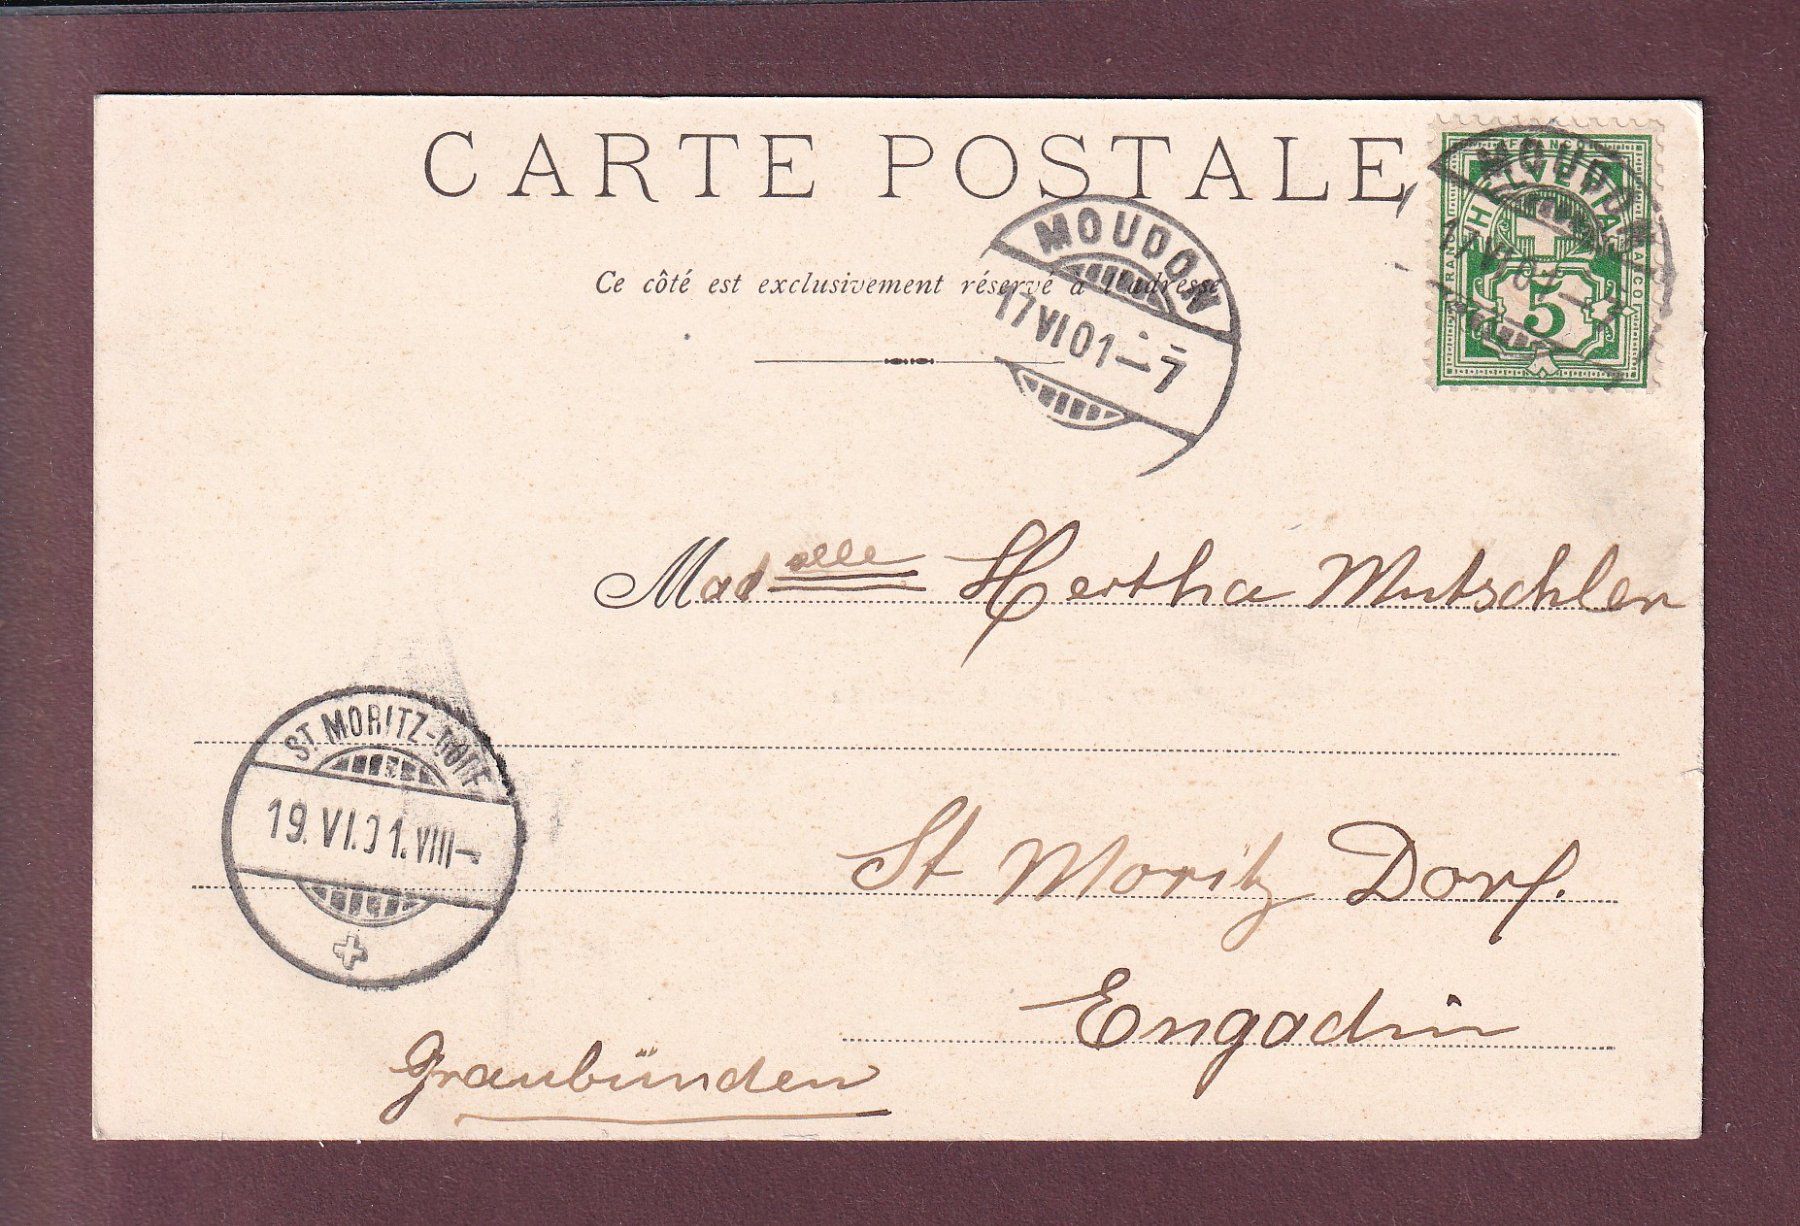 CARTE POSTALE
Ce côté est exclusivement réservé à l'adresse
MOUDON
17 VI 01 – 7
FRANCO
HELVETIA
FRANCO
FRANCO
5
MOUDON
17 VI 01 – 7
Madelle Hertha Mutschler
ST. MORITZ-DORF
19. VI. 01. VIII –
St Moritz Dorf.
Engadin
Graubünden